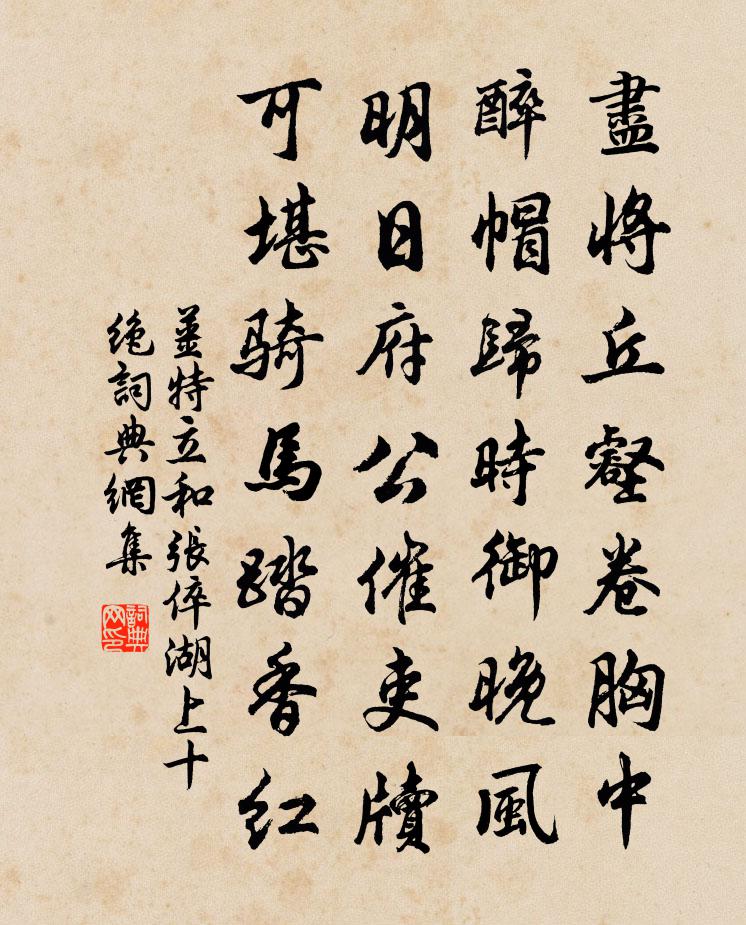 盡將丘壑卷胸中
醉帽歸時御晚風
明日府公催吏牘
可堪騎馬踏香紅
薑特立和張倅湖上十
絕詞典網集
詞典网印